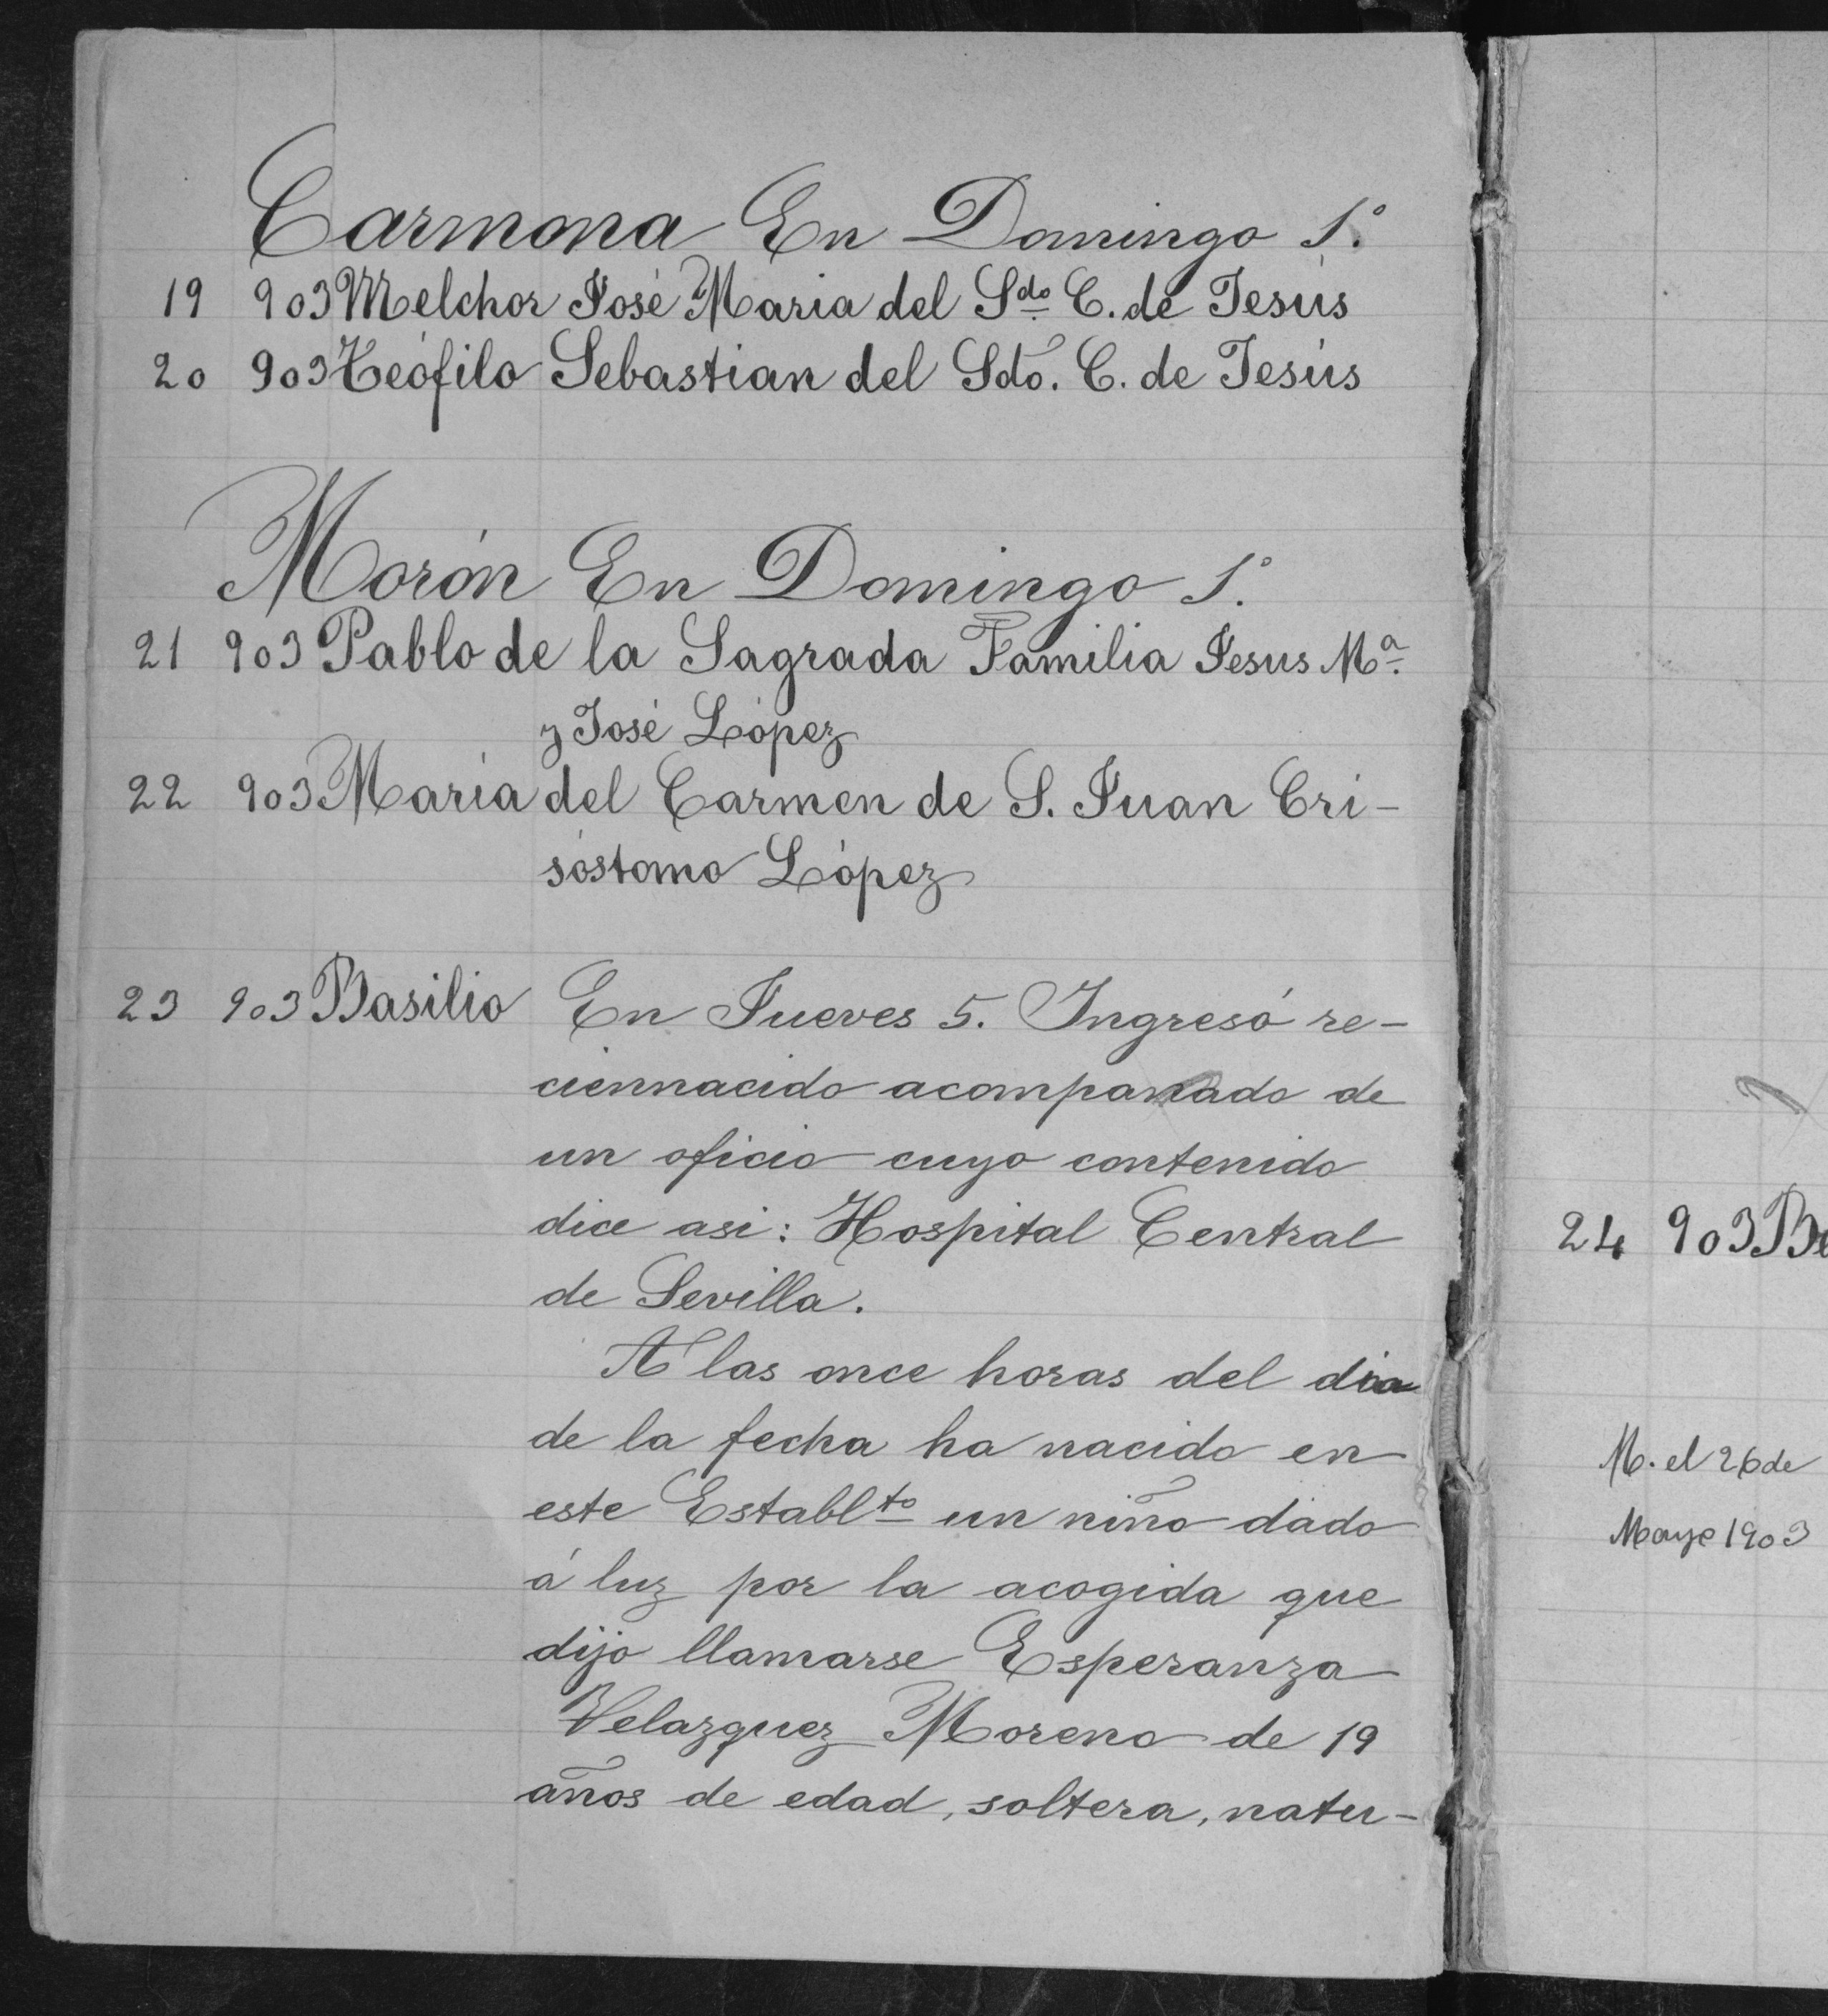 Carmona En Domingo 1.º
19 903 Melchor José Maria del Sdo. C. de Jesús
20 903 Teófilo Sebastian del Sdo. C. de Jesús
Morón En Domingo 1.º
21 903 Pablo de la Sagrada Familia Jesus Mª.
y José López
22 903 María del Carmen de S. Juan Cri-
sóstomo López
23 903 Basilio En Jueves 5. Ingresó re-
ciennacido acompanado de
un oficio cuyo contenido
dice asi: Hospital Central
de Sevilla.
A las once horas del dia
de la fecha ha nacido en
este Establto un niño dado
á luz por la acogida que
dijo llamarse Esperanza
Velazquez Moreno de 19
años de edad, soltera, natu-
24 903 Be
M. el 26 de
Mayo 1903